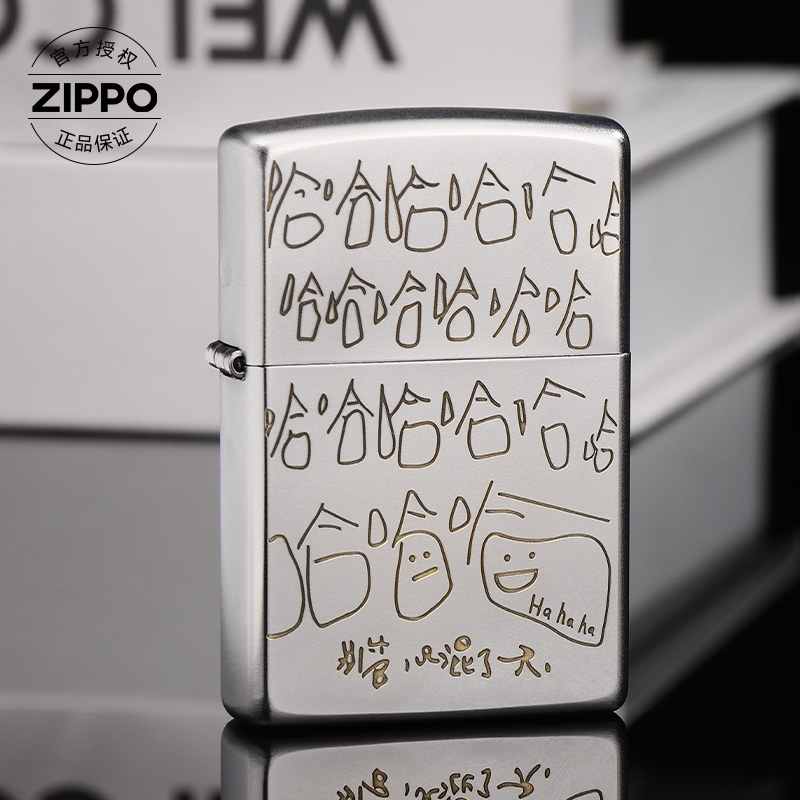 WELCO
官方授权
ZIPPO
正品保证
哈哈哈哈哈哈
哈哈哈哈哈哈
哈哈哈哈哈哈
哈哈哈
Hahaha
混了一天.